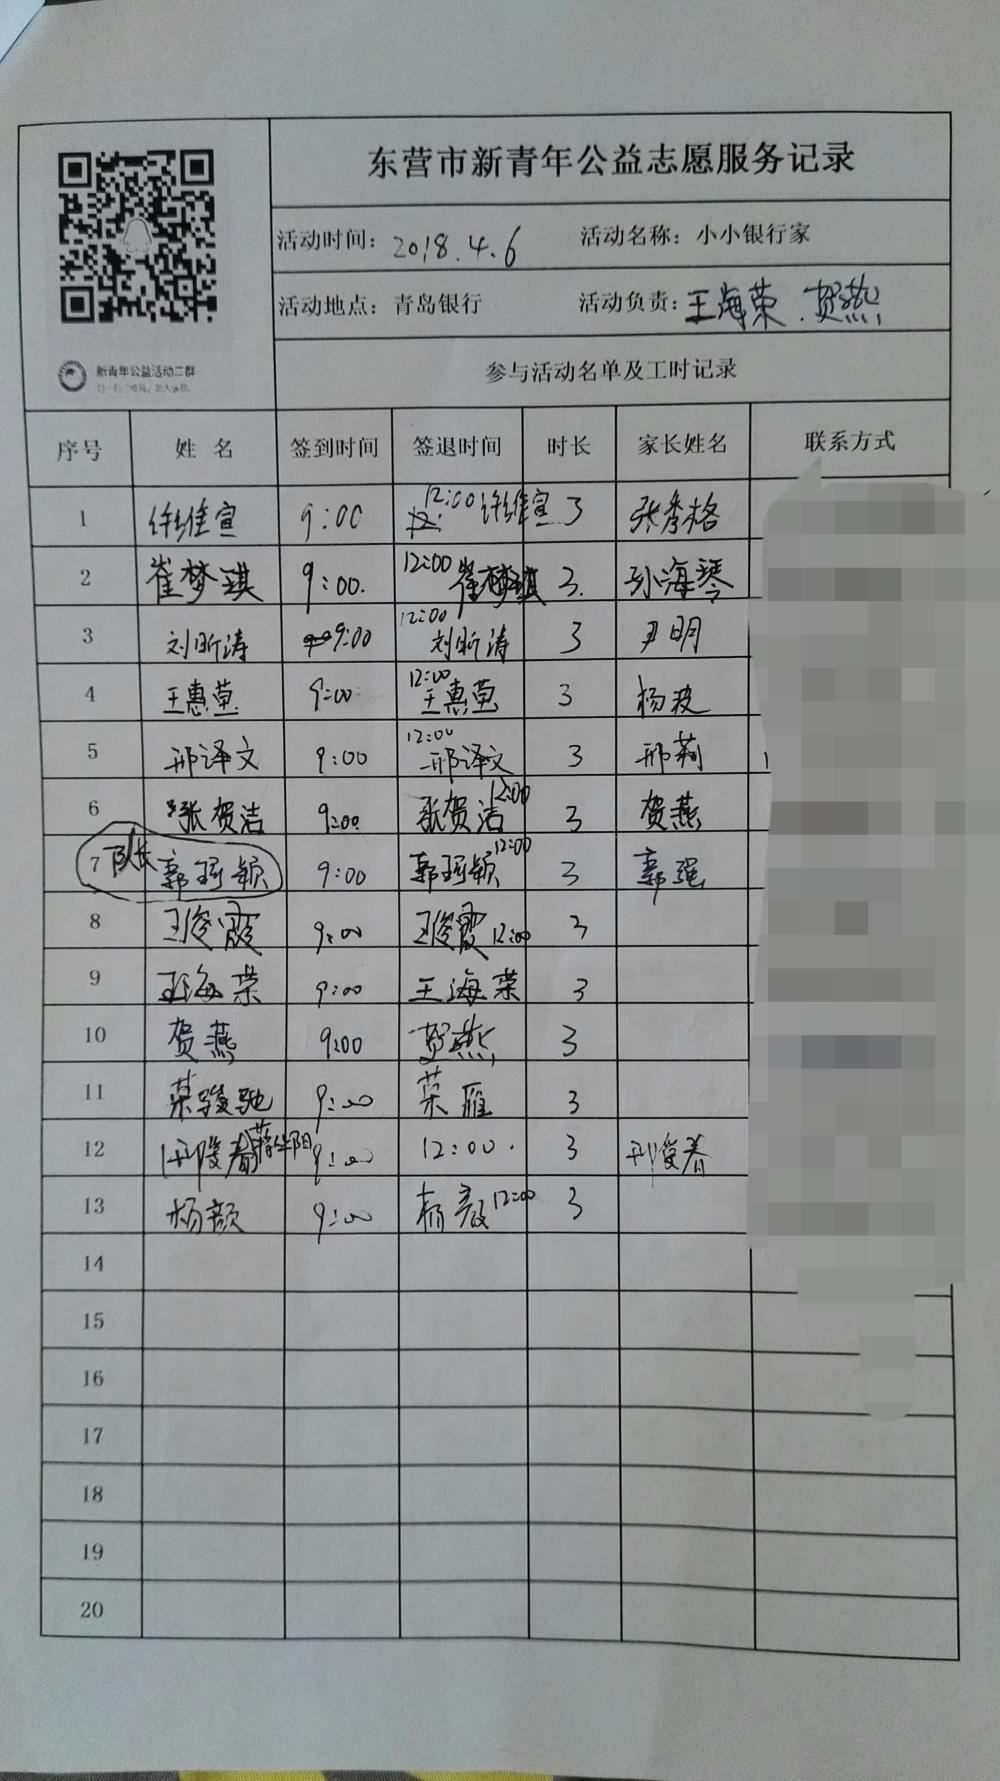 东营市新青年公益志愿服务记录
活动时间：2018.4.6 活动名称：小小银行家
活动地点：青岛银行 活动负责：王海荣、贺燕
新青年公益活动二群
参与活动名单及工时记录
序号 姓名 签到时间 签退时间 时长 家长姓名 联系方式
1 许维宣 9:00 12:00 许维宣 3 张秀格
2 崔梦琪 9:00. 12:00 崔梦琪 3. 孙海琴
3 刘昕涛 9:00 12:00 刘昕涛 3 尹明
4 王惠萱 9:00 12:00 王惠萱 3 杨波
5 邢译文 9:00 12:00 邢译文 3 邢莉
6 张贺洁 9:00 张贺洁 12:00 3 贺燕
7 队长 郭珂颖 9:00 郭珂颖 12:00 3 郭强
8 王俊霞 9:00 王俊霞 12:00 3
9 王海荣 9:00 王海荣 3
10 贺燕 9:00 贺燕 3
11 荣骏驰 9:00 荣雁 3
12 9:00 12:00. 3
13 杨颜 9:00 12:00 3
14
15
16
17
18
19
20